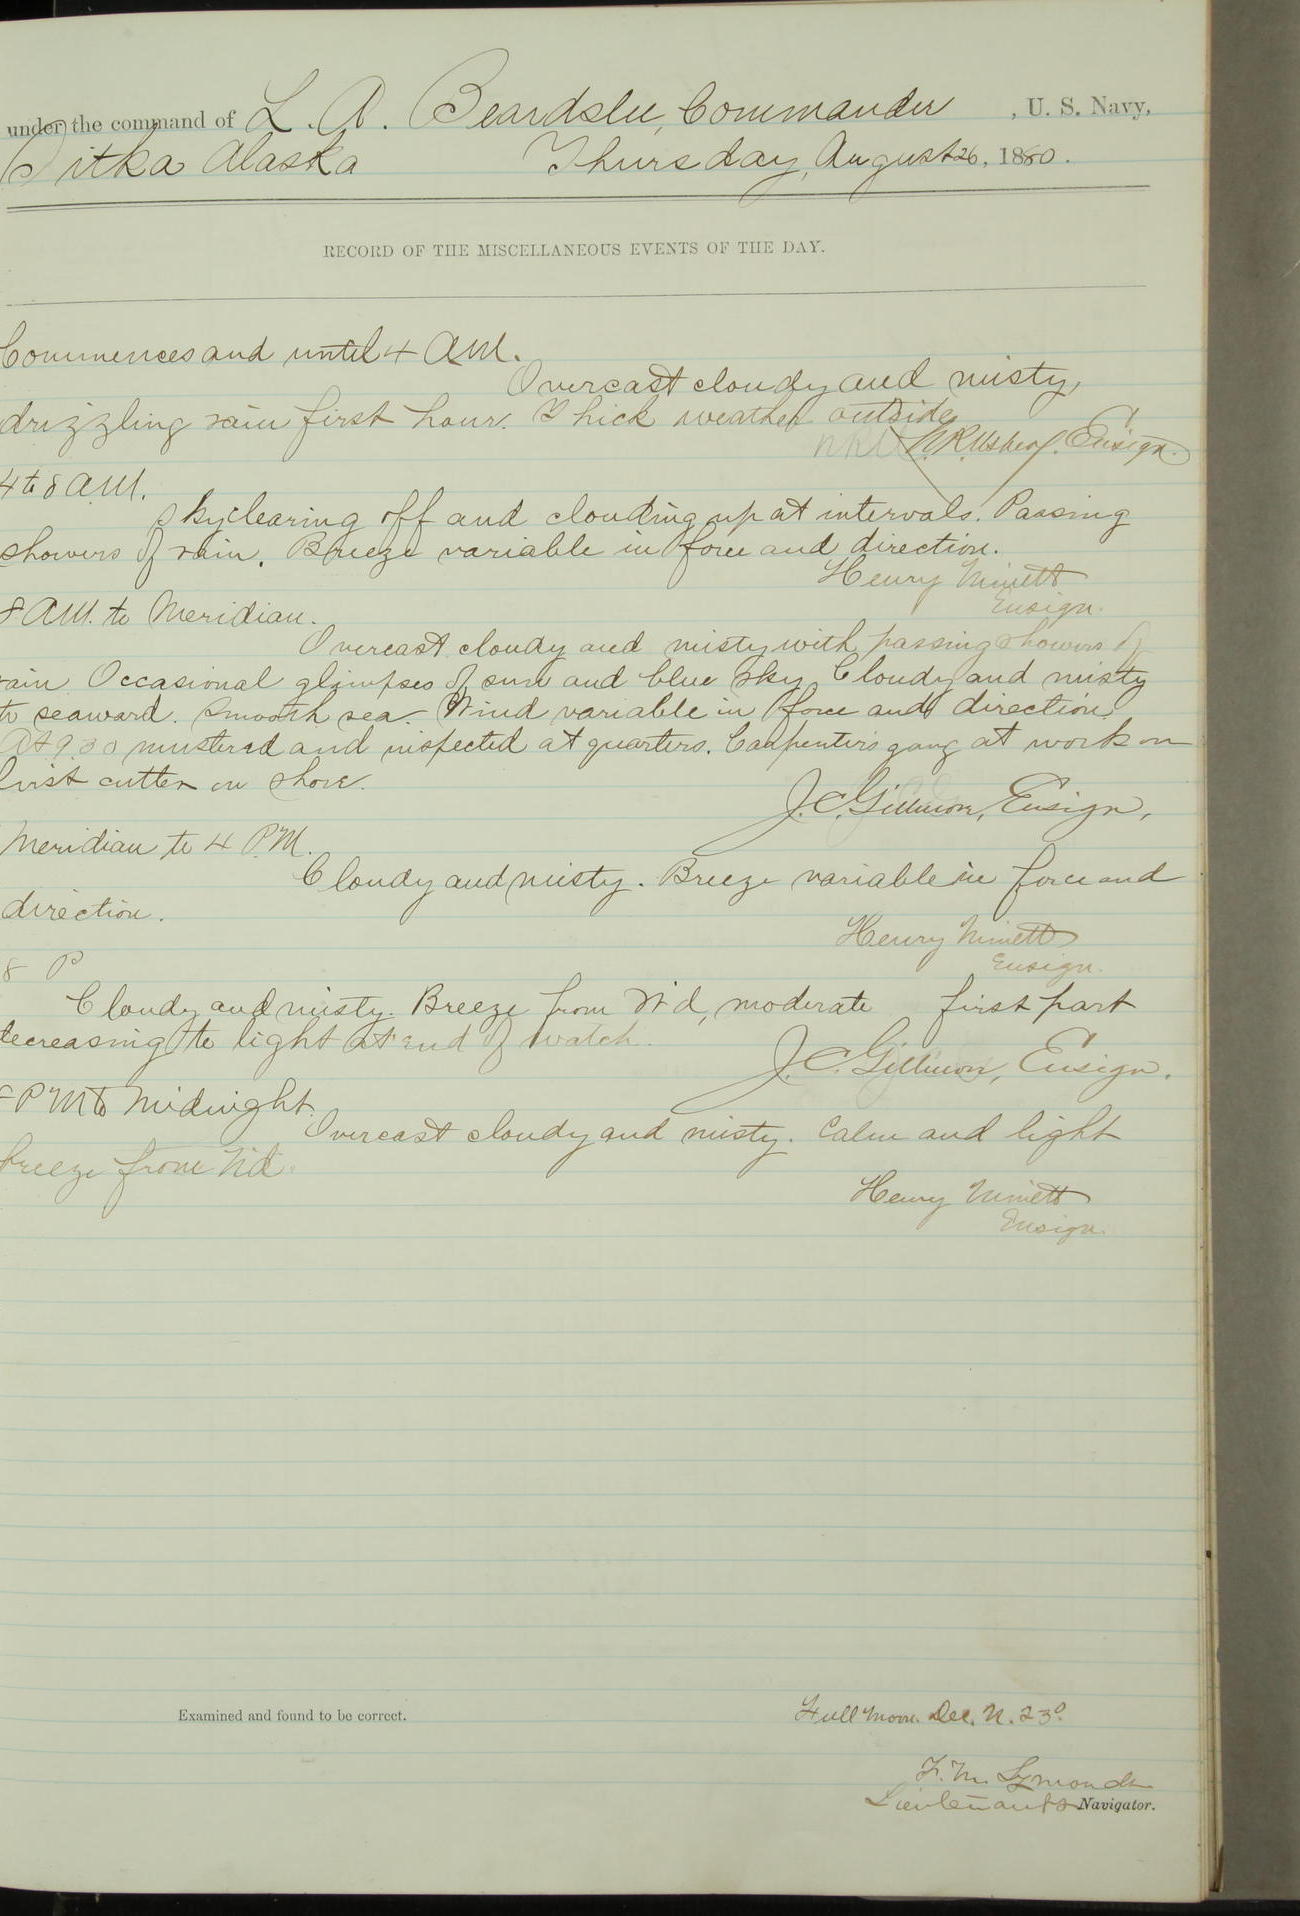 under the command of L. A. Beardslee, Commander , U. S. Navy,
Sitka Alaska Thursday, August 26, 1880.
RECORD OF THE MISCELLANEOUS EVENTS OF THE DAY.
Commences and until 4 A.M.
Overcast cloudy and misty,
drizzling rain first hour. Thick weather outside
N.R. Usher, Ensign.
4 to 8 A.M.
Sky clearing off and clouding up at intervals. Passing
showers of rain. Breeze variable in force and direction.
Henry Minett
Ensign.
8 A.M. to Meridian.
Overcast cloudy and misty with passing showers of
rain. Occasional glimpses of sun and blue sky. Cloudy and misty
to seaward. Smooth sea. Wind variable in force and direction.
At 9.30 mustered and inspected at quarters. Carpenter's gang at work on
first cutter on shore.
J.C. Gillmore, Ensign,
Meridian to 4 P.M.
Cloudy and misty. Breeze variable in force and
direction.
Henry Minett
Ensign.
8 P
Cloudy and misty. Breeze from N'd, moderate first part
decreasing to light at end of watch.
J.C. Gillmore, Ensign.
8 P M to Midnight.
Overcast cloudy and misty. Calm and light
breeze from N'd.
Henry Minett
Ensign.
Examined and found to be correct.
Full Moon. Dec. N. 23°
F. M. Symonds
Lieutenant & Navigator.